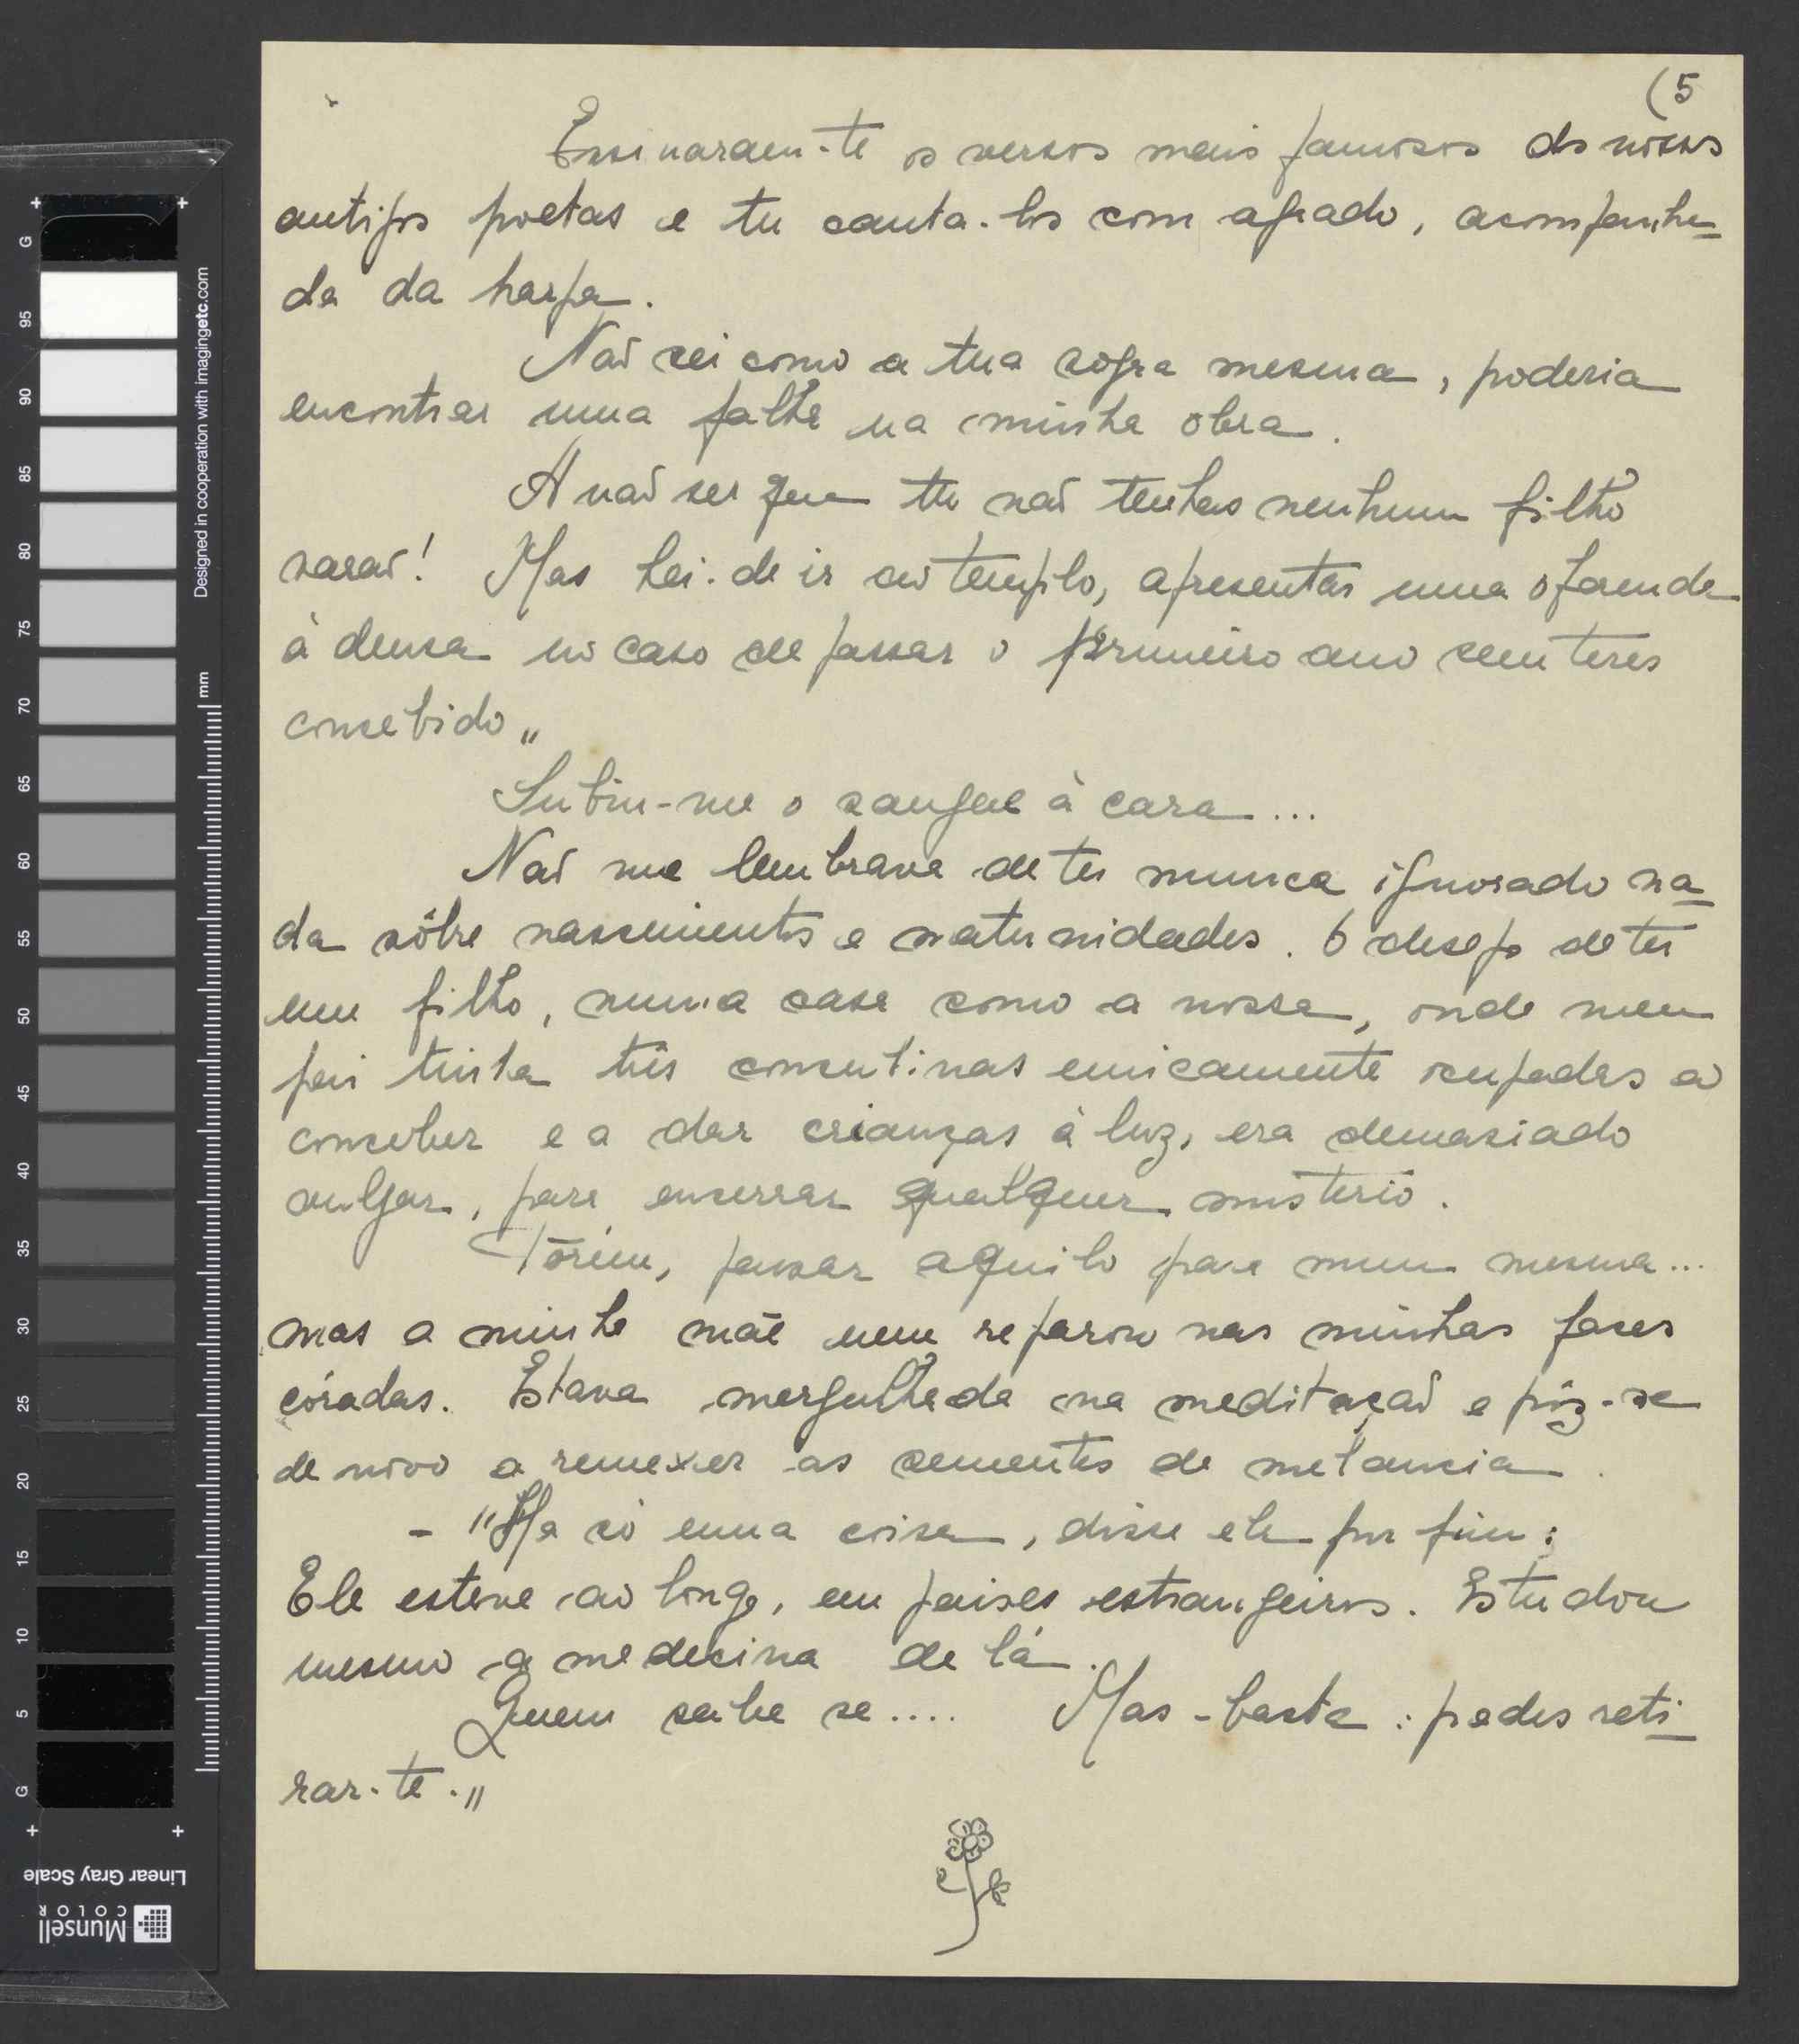 (5
Ensinaram-te os versos mais famosos dos nossos
antigos poetas e tu canta-los com agrado, acompanha-
da da harpa.
Não sei como a tua sogra mesma, poderia
encontrar uma falha na minha obra.
A não ser que tu não tenhas nenhum filho
varão! Mas hei-de ir ao templo, apresentar uma oferenda
à deusa no caso de passar o primeiro ano sem teres
concebido„
Subiu-me o sangue à cara...
Não me lembrava de ter nunca ignorado na-
da sôbre nascimentos e maternidades. O desejo de ter
um filho, numa casa como a nossa, onde meu
pai tinha três concubinas unicamente ocupadas a
conceber e a dar crianças à luz, era demasiado
vulgar, para encerrar qualquer misterio.
Pórém, pensar aquilo para mim mesma...
mas a minha mãe nem reparou nas minhas faces
córadas. Estava mergulhada na meditação e pôz-se
de novo a remexer as sementes de melancia.
- "Ha só uma coisa, disse ela por fim:
Ele esteve ao longe, em paises estrangeiros. Estudou
mesmo a medecina de lá.
Quem sabe se.... Mas - basta: podes reti-
rar-te.„
G 95 90 85 80 75 70 65 60 55 50 45 40 35 30 25 20 15 10 5 G
mm
Designed in cooperation with imagingetc.com
Linear Gray Scale
Munsell
COLOR